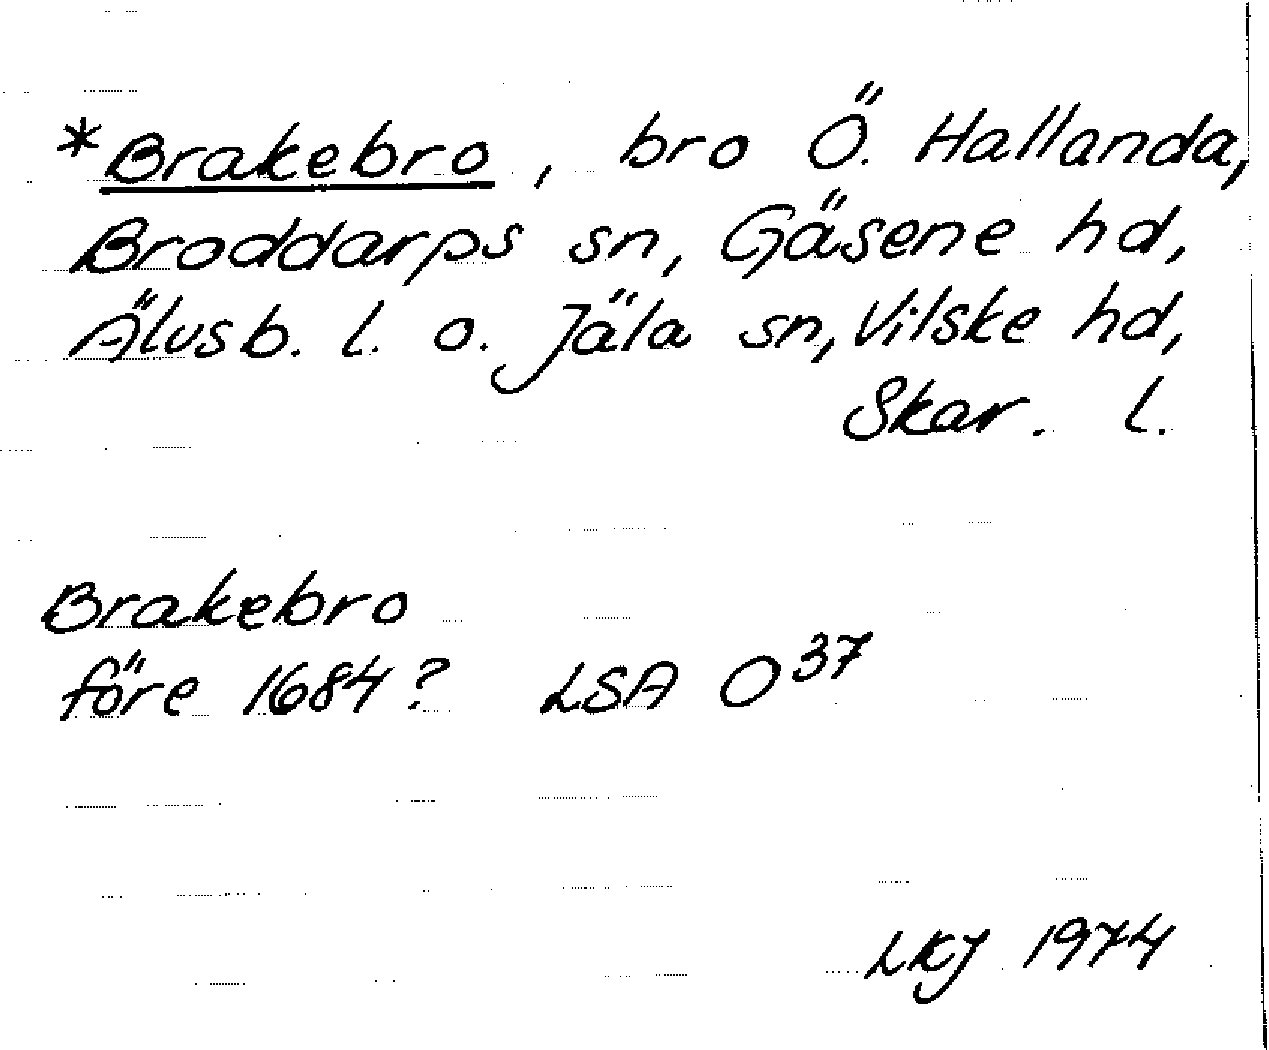 *Brakebro, bro Ö. Hallanda,
Broddarps sn, Gäsene hd,
Älvsb. l. o. Jäla sn, Vilske hd,
Skar. l.
Brakebro
före 1684? LSA O37
LKJ 1974